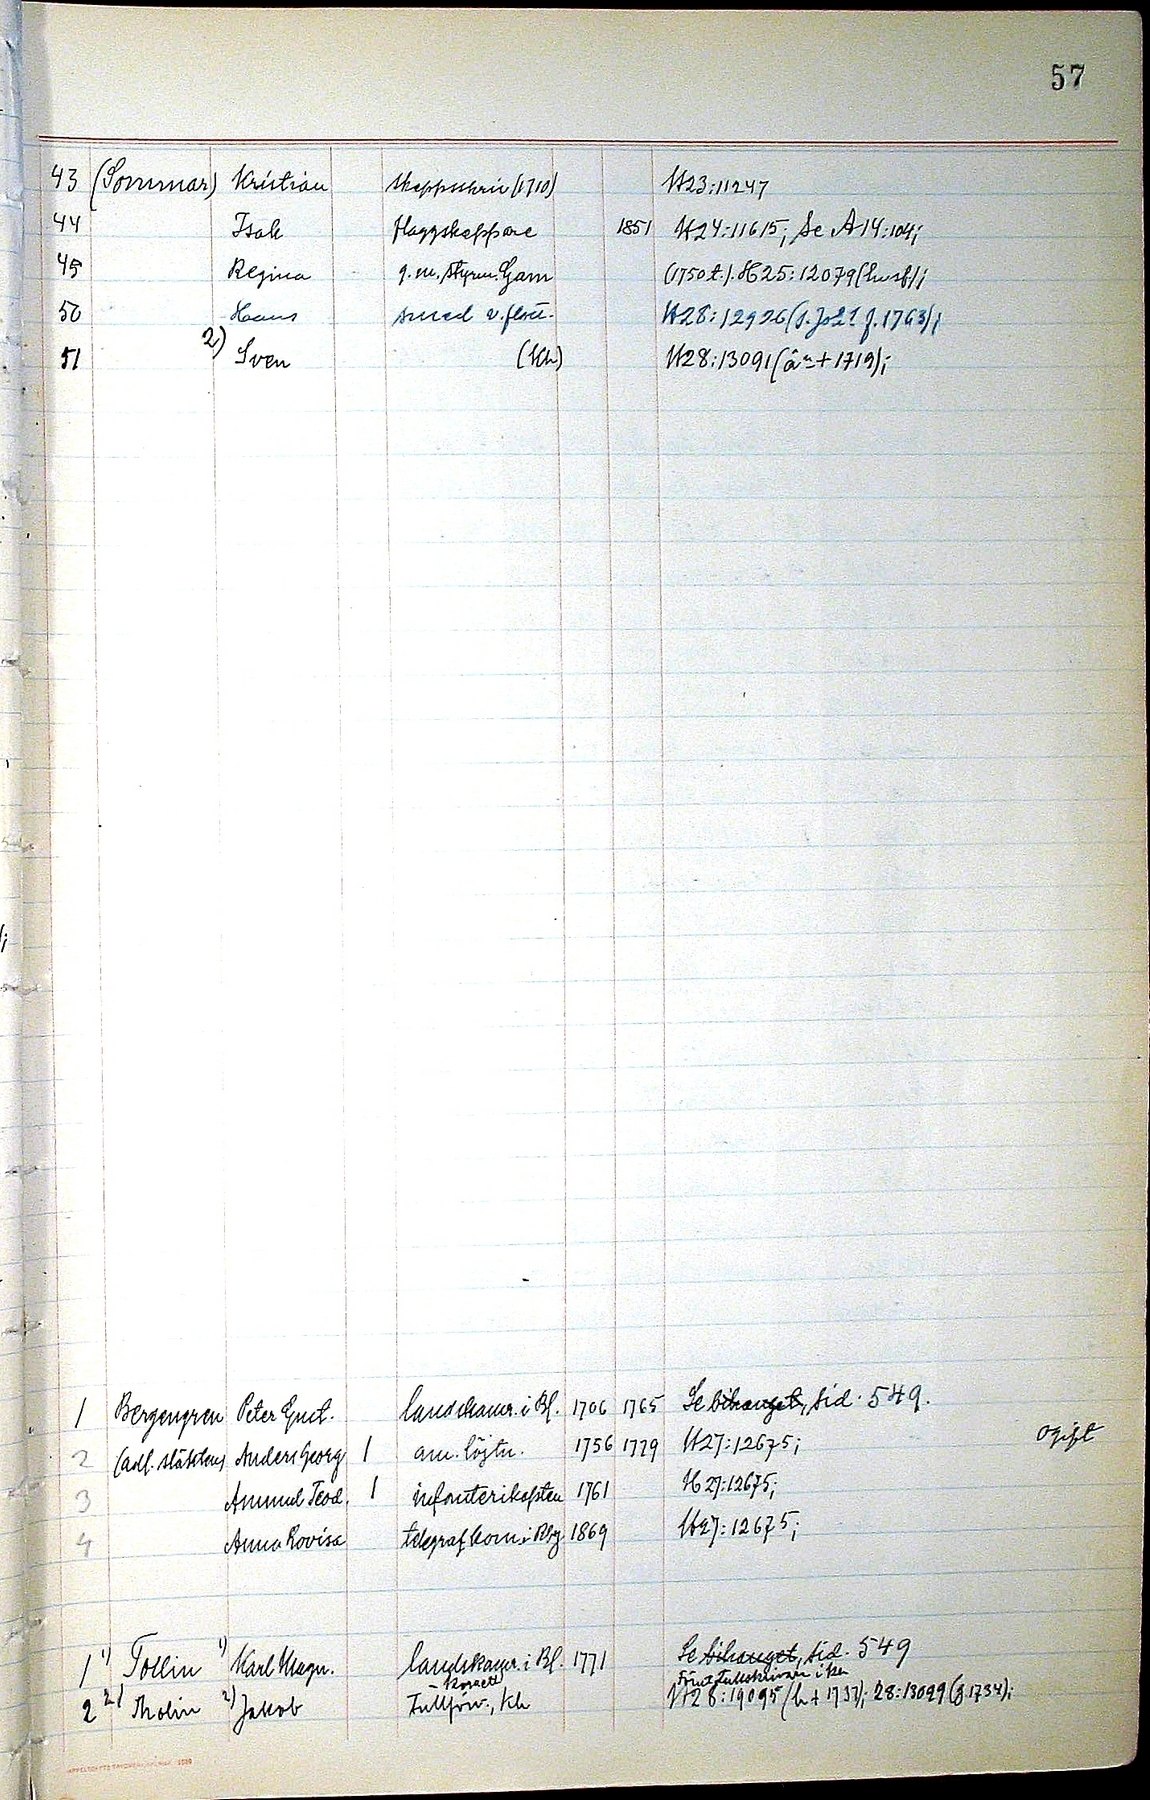 57
43 (Sommar) Kristian skeppsskriv (1710) H23:11247
44 Isak flaggskeppare 1851 H24:11615; Se A14:104;
45 Regina g.m. styrm. Gam (1750 t.). H25:12079 (husf);
50 Hans smed v. flott. H28:12926 f. 1763);
51 2) Sven (Kh) H28:13091 (än + 1719);
1 Bergengren Peter Gust. landskamr. i Bl. 1706 1765 Se bihanget, sid. 549.
2 (adl. släkten) Anders Georg 1 am. löjtn. 1756 1779 H27:12675; ogift
3 Samuel Teod. 1 infanterikapten 1761 H27:12675;
4 Anna Lovisa telegrafkom. i Rby 1869 H27:12675;
1 1) Tollin 1) Karl Magn. landskamr. i Bl. 1771 Se bihanget, sid. 549
2 2) Tholin 2) Jakob tullförv., Kh H28:19095 (h + 1737); 28:13099 (g 1734);